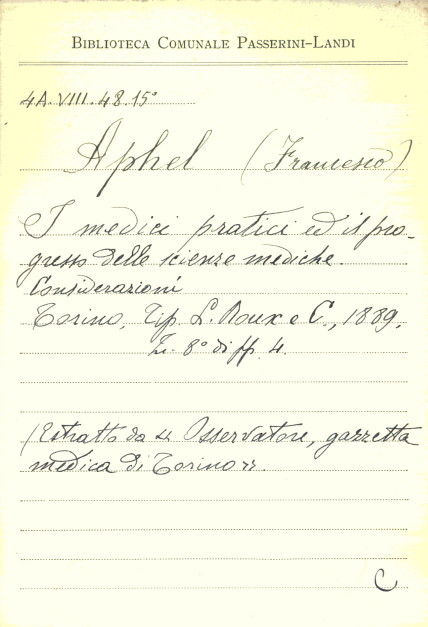 BIBLIOTECA COMUNALE PASSERINI-LANDI
4A.VIII.48.15°
Aphel (Francesco)
I medici pratici ed il pro-
gresso delle scienze mediche.
Considerazioni
Torino, Tip. L. Roux e C, 1889,
in 8° di pp. 4.
(Estratto da «Osservatore, gazzetta
medica di Torino».
C